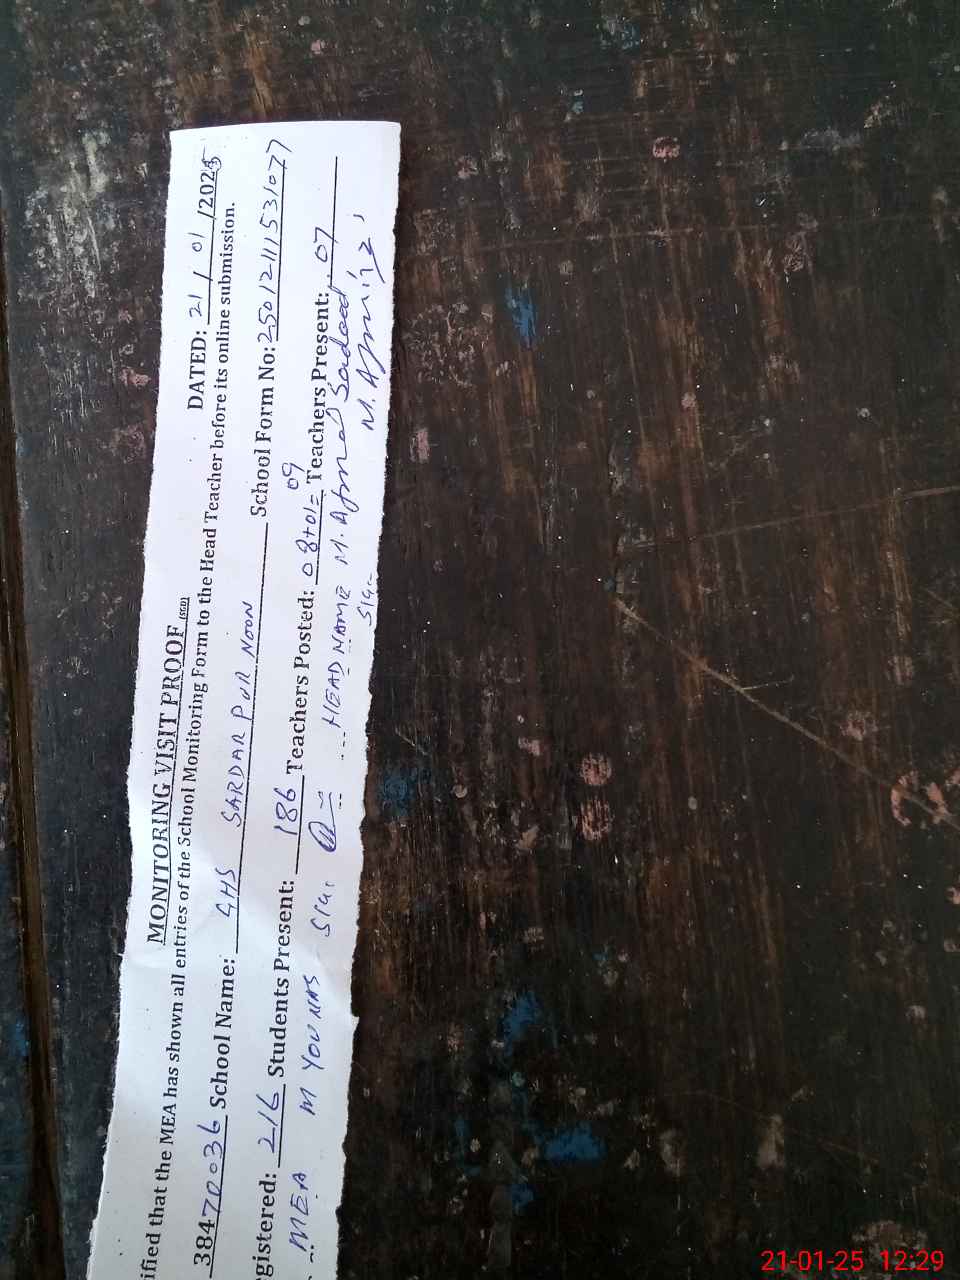 MONITORING VISIT PROOF (SGD) DATED: 21/01/2025
ified that the MEA has shown all entries of the School Monitoring Form to the Head Teacher before its online submission.
38470036 School Name: GHS SARDAR PUR NOON School Form No: 25012111531077
gistered: 216 Students Present: 186 Teachers Posted: 08+01=09 Teachers Present: 07
MEA M YOUNAS SIG. HEAD NAME M. Afzaal
SIG.
21-01-25 12:29